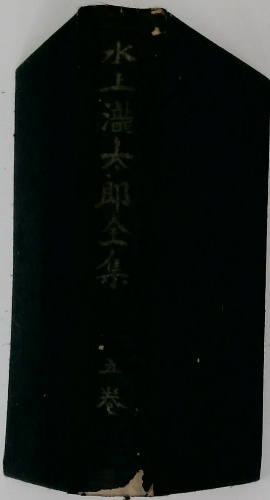 水上瀧太郎全集
五巻